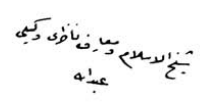 شيخ الاسلام و معارف ناظرى وكيلى
عبدالله